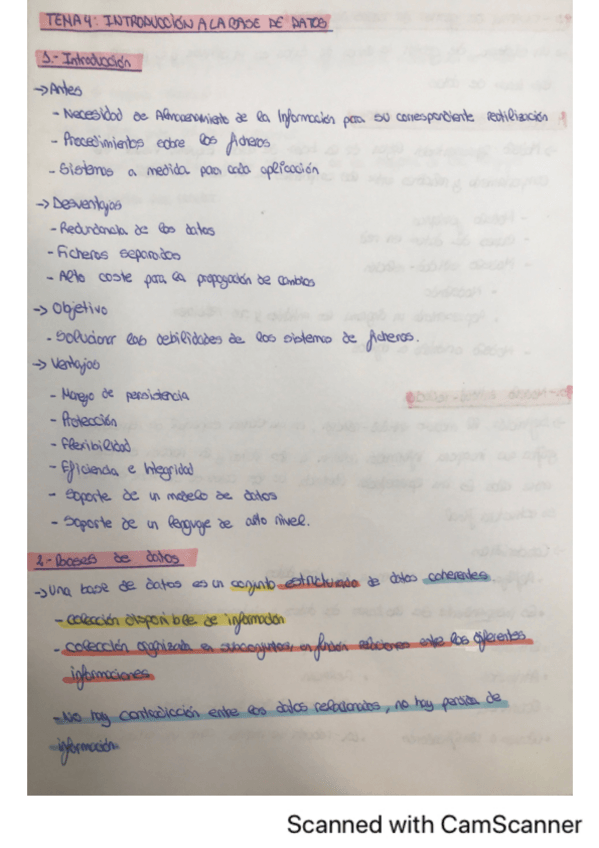 TEMA 4: INTRODUCCIÓN A LA BASE DE DATOS
1.- Introducción
→ Antes
- Necesidad de Almacenamiento de la Información para su correspondiente reutilización
- Procedimientos sobre los ficheros
- Sistemas a medida para cada aplicación
→ Desventajas
- Redundancia de los datos
- Ficheros separados
- Alto coste para la propagación de cambios
→ Objetivo
- Solucionar las debilidades de los sistema de ficheros.
→ Ventajas
- Manejo de persistencia
- Protección
- Flexibilidad
- Eficiencia e Integridad
- Soporte de un modelo de datos
- Soporte de un lenguaje de alto nivel.
2.- Bases de datos
→ Una base de datos es un conjunto estructurado de datos coherentes.
- colección disponible de información
- colección organizada en subconjuntos, en función relaciones entre las diferentes
informaciones
- No hay contradicción entre los datos relacionados, no hay perdida de
información
Scanned with CamScanner